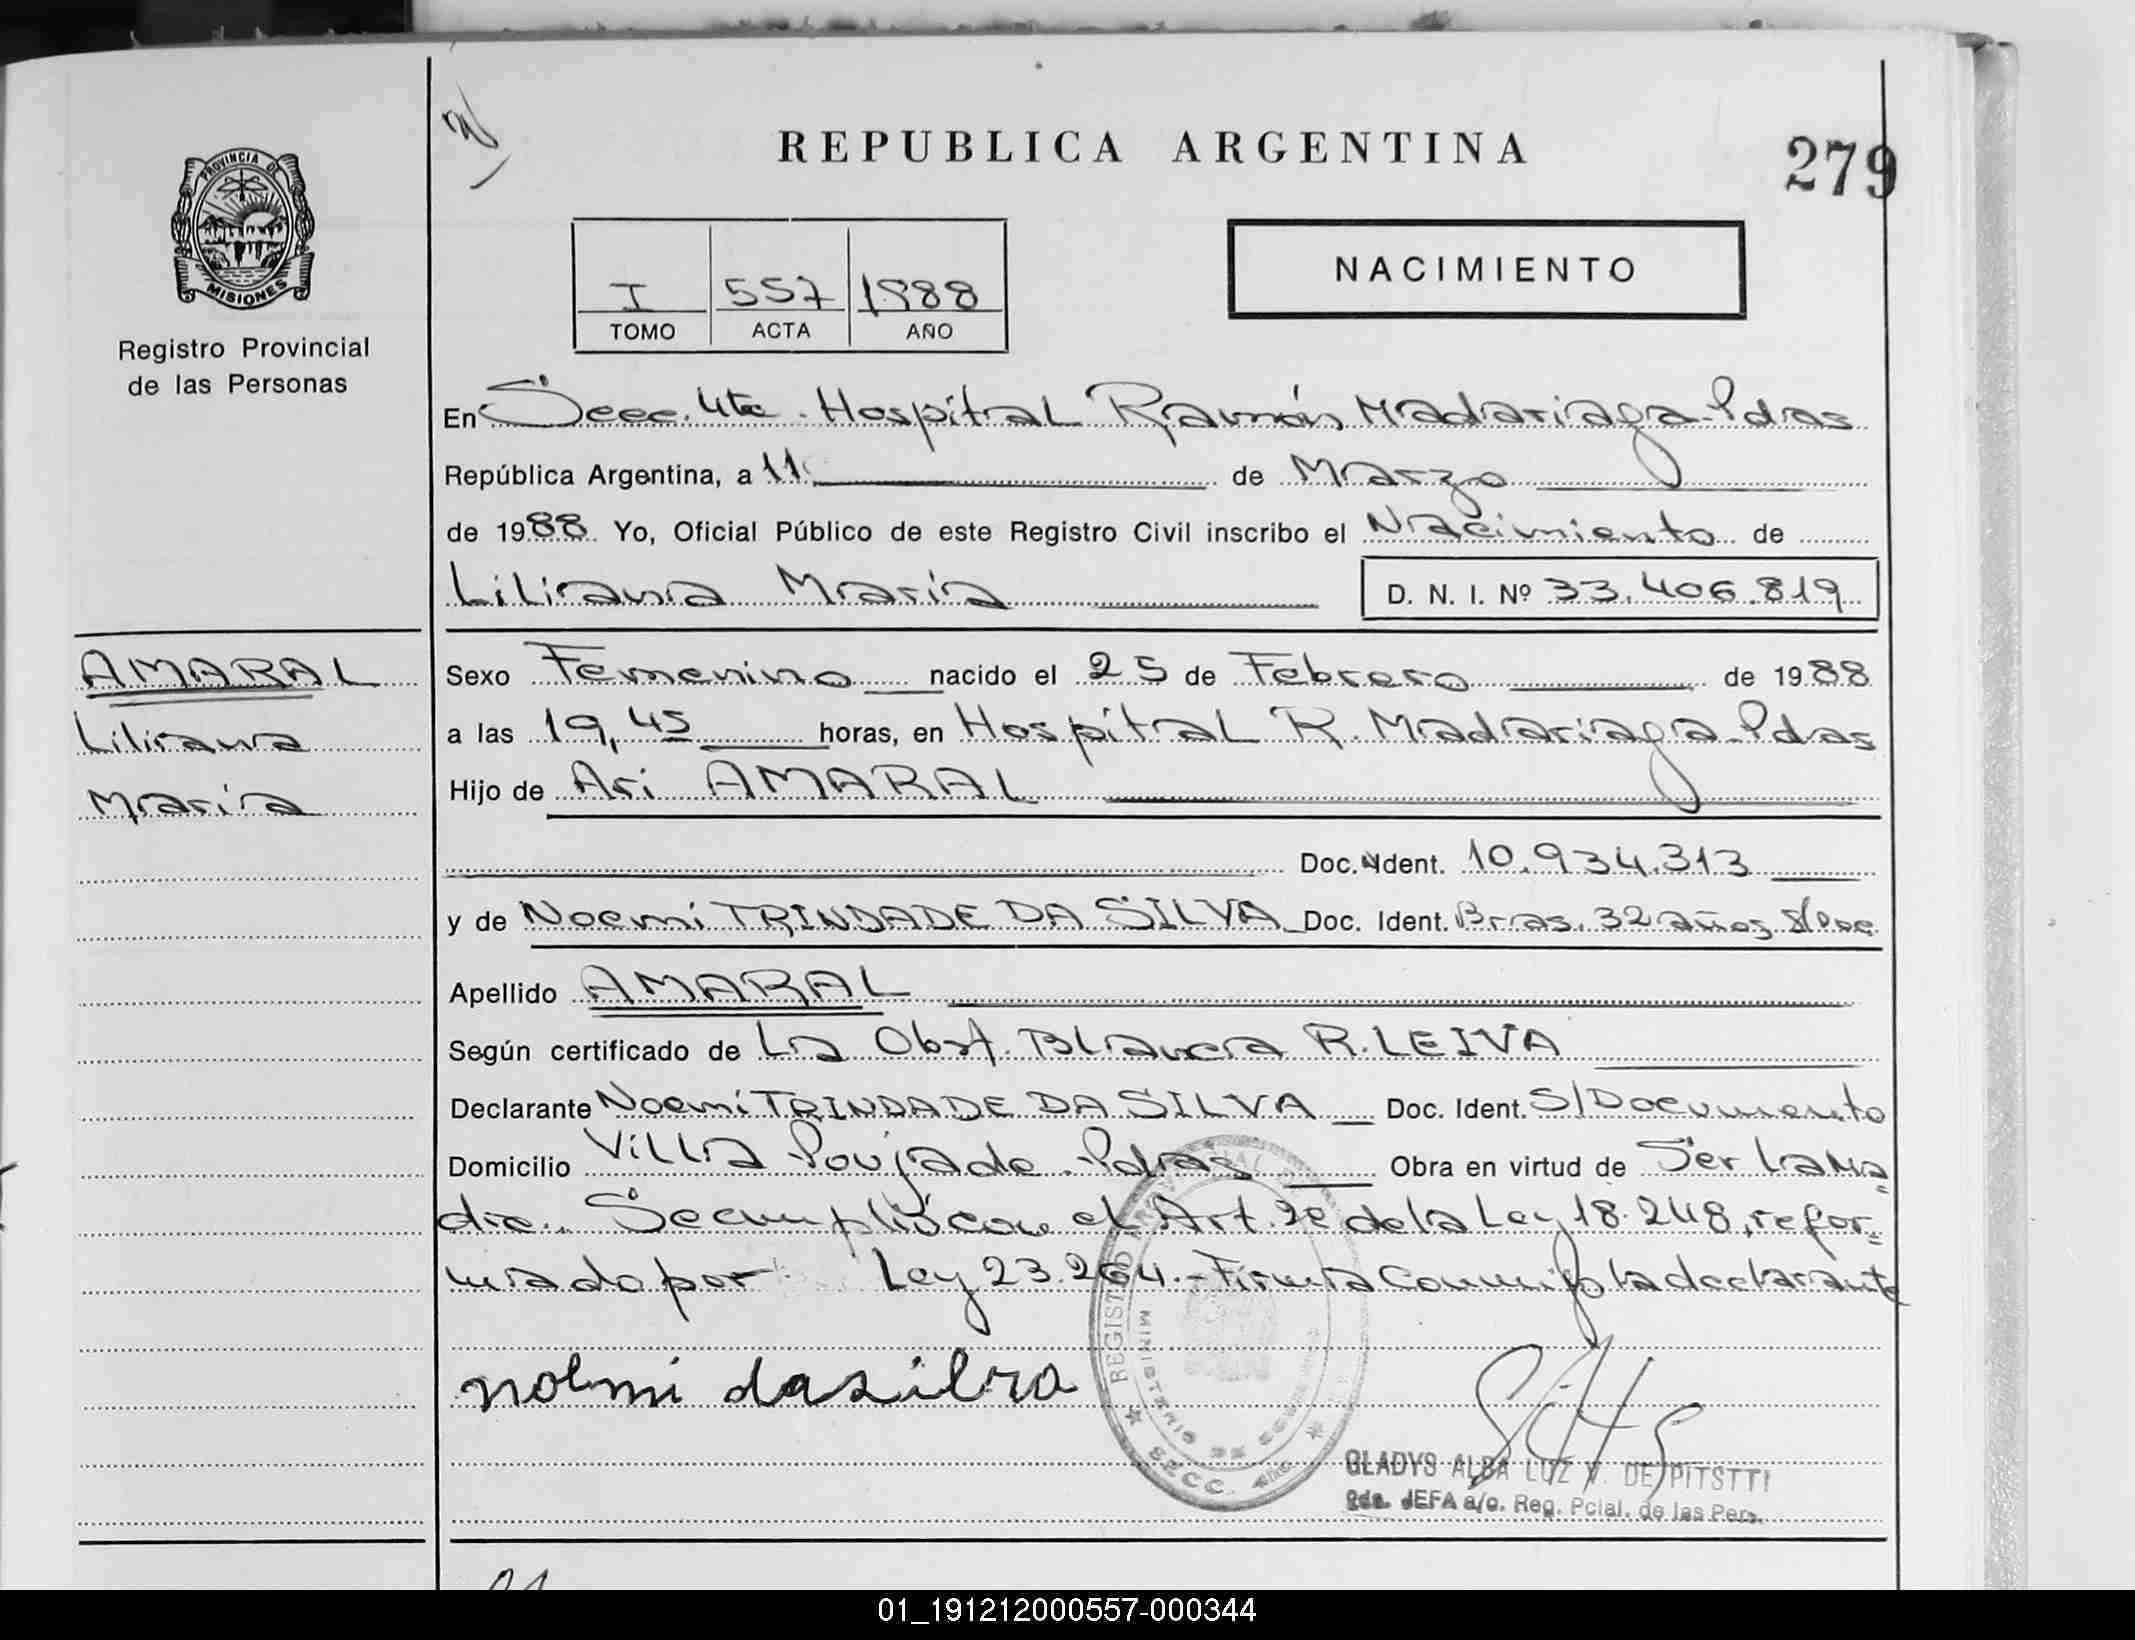 REPUBLICA ARGENTINA
279
PROVINCIA DE
MISIONES
Registro Provincial
de las Personas
I 557 1988
TOMO ACTA AÑO
NACIMIENTO
En Secc. 4ta. Hospital Ramón Madariaga-Pdas
República Argentina, a 11 de Marzo
de 1988. Yo, Oficial Público de este Registro Civil inscribo el Nacimiento de
Liliana María D. N. I. Nº 33.406.819
AMARAL
Liliana
María
Sexo Femenino nacido el 25 de Febrero de 1988
a las 19,45 horas, en Hospital R. Madariaga-Pdas
Hijo de Ari AMARAL
Doc. Ident. 10.934.313
y de Noemí TRINDADE DA SILVA Doc. Ident. Bras. 32 años S/Doc.
Apellido AMARAL
Según certificado de La Obst. Blanca R. LEIVA
Declarante Noemí TRINDADE DA SILVA Doc. Ident. S/Documento
Domicilio Villa Poujade-Pdas Obra en virtud de Ser la ma
dre. Se cumplió con el Art. 2º de la Ley 18.248, refor-
mado por Ley 23.264.- Firma Conmigo la declarante
noemi dasilva
REGISTRO
MINISTERIO DE
SECC. 4ta
GLADYS ALBA LUZ V. DE PITSTTI
2da. JEFA a/c. Reg. Pcial. de las Pers.
01_191212000557-000344